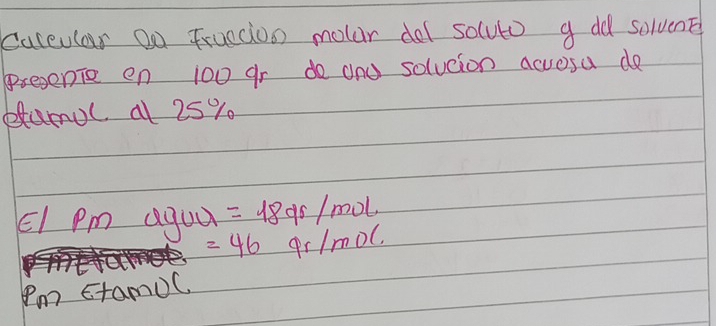 Calcular la Fraccion molar del soluto y del solvente
Presente en 100 gr de una solucion acuosa de
etanol al 25%
El Pm agua = 18 gr/mol
= 46 gr/mol.
Pm Etanol